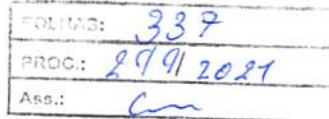 FOLHAS: 337
PROC.: 299/2021
Ass.: